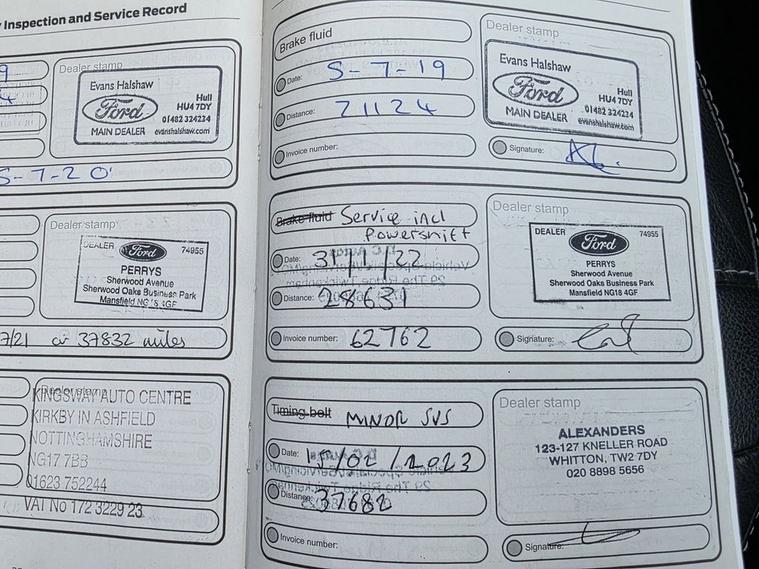 y Inspection and Service Record
Dealer stamp
Evans Halshaw
Ford
Hull
HU4 7DY
01482 324224
MAIN DEALER evanshalshaw.com
5-7-20
Dealer stamp
DEALER Ford 74955
PERRYS
Sherwood Avenue
Sherwood Oaks Business Park
Mansfield NG18 4GF
7/21 or 37832 miles
Dealer stamp
KINGSWAY AUTO CENTRE
KIRKBY IN ASHFIELD
NOTTINGHAMSHIRE
NG17 7BB
01623 752244
VAT No 172 3229 23
Brake fluid
Date: 5-7-19
Distance: 21124
Invoice number:
Dealer stamp
Evans Halshaw
Ford
Hull
HU4 7DY
01482 324224
MAIN DEALER evanshalshaw.com
Signature:
Brake fluid Service incl
Powershift
Date: 31/1/22
Distance: 28631
Invoice number: 62762
Dealer stamp
DEALER Ford 74955
PERRYS
Sherwood Avenue
Sherwood Oaks Business Park
Mansfield NG18 4GF
Signature:
Timing belt MINOR SVS
Date: 17/02/2023
Distance: 37682
Invoice number:
Dealer stamp
ALEXANDERS
123-127 KNELLER ROAD
WHITTON, TW2 7DY
020 8898 5656
Signature: